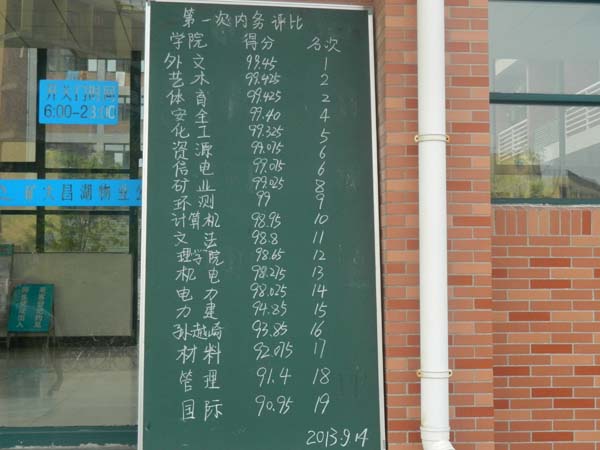 第一次内务评比
学院 得分 名次
外文 99.45 1
艺术 99.425 2
体育 99.425 2
安全 99.40 4
化工 99.325 5
资源 99.075 6
信电 99.075 6
矿业 99.025 8
环测 99 9
计算机 98.95 10
文法 98.8 11
理学院 98.65 12
机电 98.275 13
电力 98.025 14
力建 94.85 15
孙越崎 93.85 16
材料 92.075 17
管理 91.4 18
国际 90.95 19
2013.9.14
开关门时间
6:00-23:00
矿大昌湖物业公